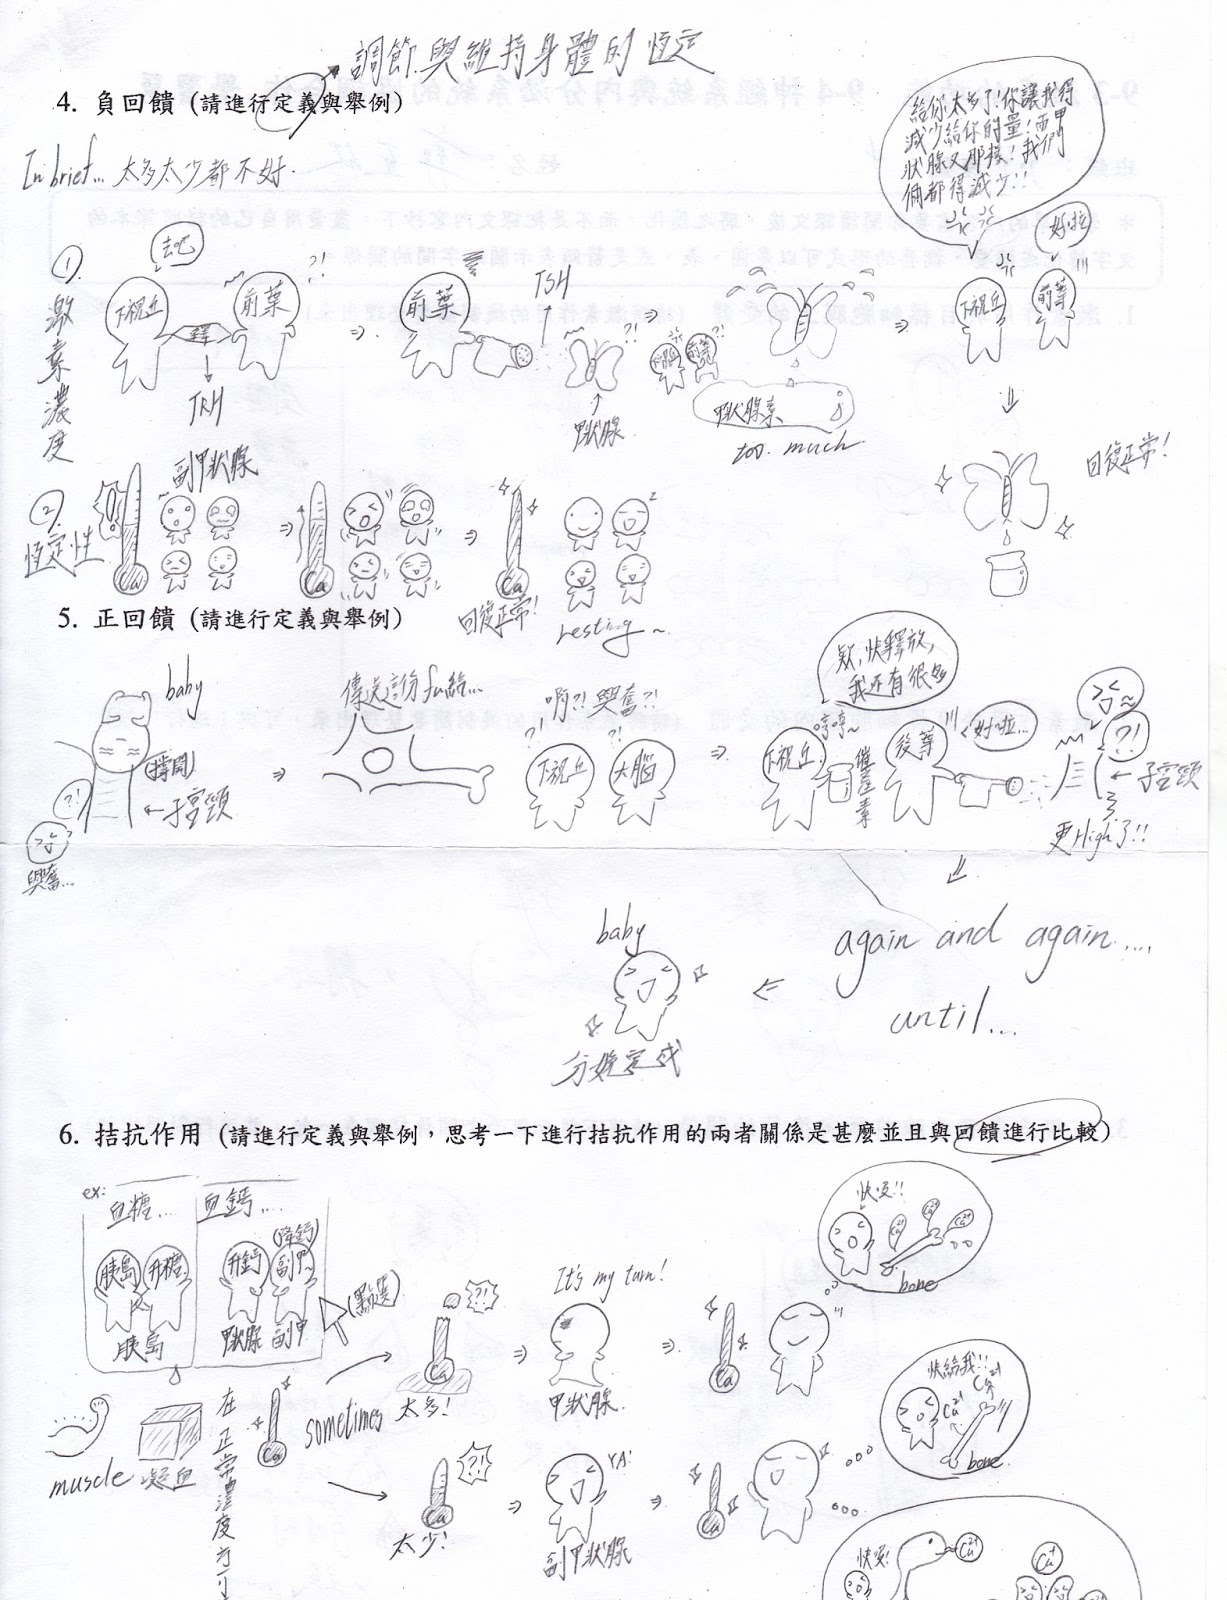 調節與維持身體的恆定
4. 負回饋 (請進行定義與舉例)
In brief... 太多太少都不好.
給你太多了!你讓我得
減少給你的量!而甲
狀腺又那樣!我們
倆都得減少!!
好啦
① 激素濃度
去吧
下視丘
前葉
?!
TRH
前葉
TSH
甲狀腺
?!
甲狀腺素
too much
下視丘
前葉
回復正常!
② 恆定性
副甲狀腺
Ca
Ca
Ca
回復正常!
resting~
5. 正回饋 (請進行定義與舉例)
baby
(撐開)
←子宮頸
?!
興奮...
傳送這份fu給...
啊?! 興奮?!
?!
?!
下視丘
大腦
欸,快釋放,
我还有很多
下視丘
哼哼~
催產素
後葉
好啦...
?!
←子宮頸
更High了!!
again and again....
until...
baby
分娩完成
6. 拮抗作用 (請進行定義與舉例，思考一下進行拮抗作用的兩者關係是甚麼並且與回饋進行比較)
ex:
血糖....
血鈣....
胰島
升糖
胰島
升鈣
(降鈣)
副甲
甲狀腺
副甲
(點選)
muscle
凝血
在正常濃度方可
Ca
sometimes
太多!
Ca
?!
It's my turn!
甲狀腺
Ca
快吸!!
Ca²⁺
Ca²⁺
Ca²⁺
bone
太少!
Ca
?!
YA!
副甲狀腺
Ca
快給我!!
Ca²⁺
Ca²⁺
bone
快吸!
Ca²⁺
Ca²⁺